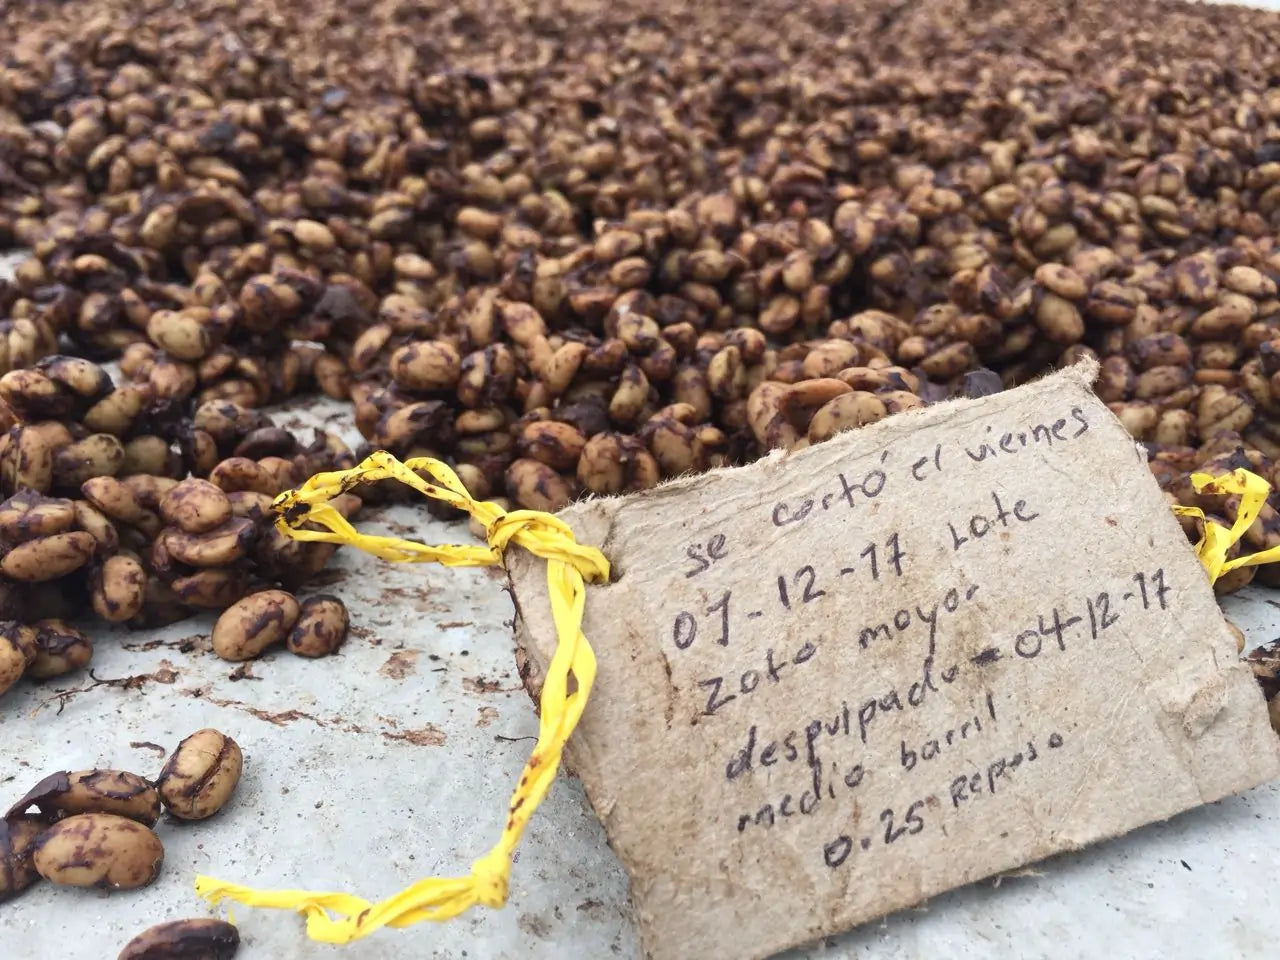 se cortó el viernes
01-12-17 Lote
Zoto mayor
despulpado = 04-12-17
medio barril
0.25 Reposo